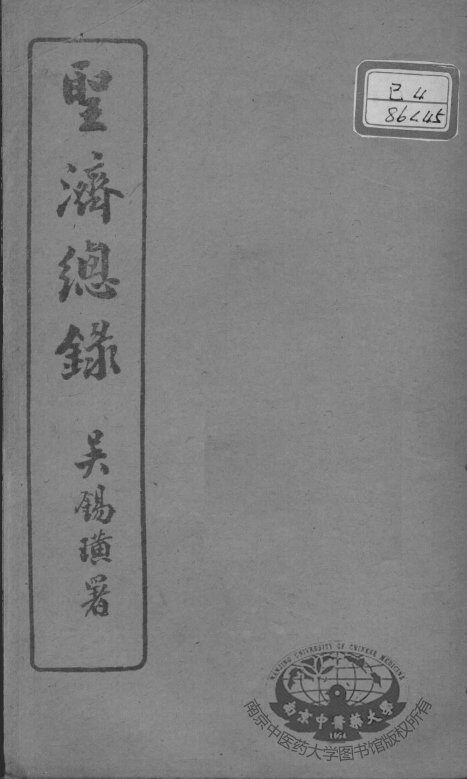 聖濟總錄
吳錫璜署
已 4
86245
NANJING UNIVERSITY OF CHINESE MEDICINE
南京中醫藥大學
1954
南京中医药大学图书馆版权所有